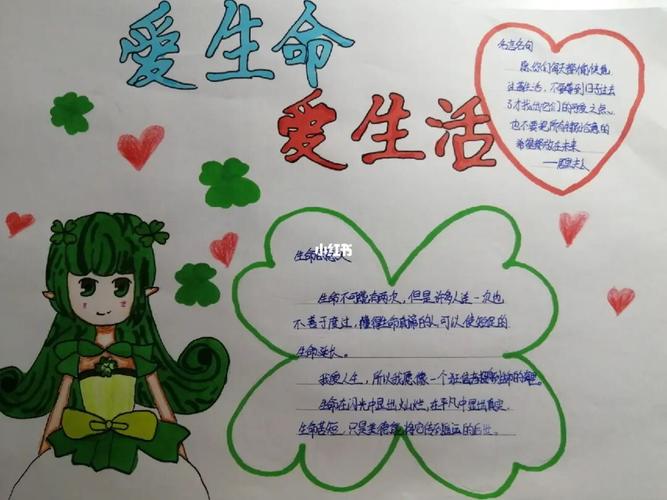 爱生命
爱生活
名言名句
愿你们每天都愉快地
过着生活，不要等到日子过去
了才找出它们的可爱之点，
也不要把所有特别合意的
希望都放在未来
——居里夫人
小红书
生命的意义
生命不可能有两次，但是许多人连一次也
不善于度过，懂得生命真谛的人，可以使短促的
生命延长。
我爱人生，所以我愿像一个狂信者
生命在闪光中显出灿烂，在平凡中显出真实。
生命苦短，只是美德能将它传到遥远的后世。